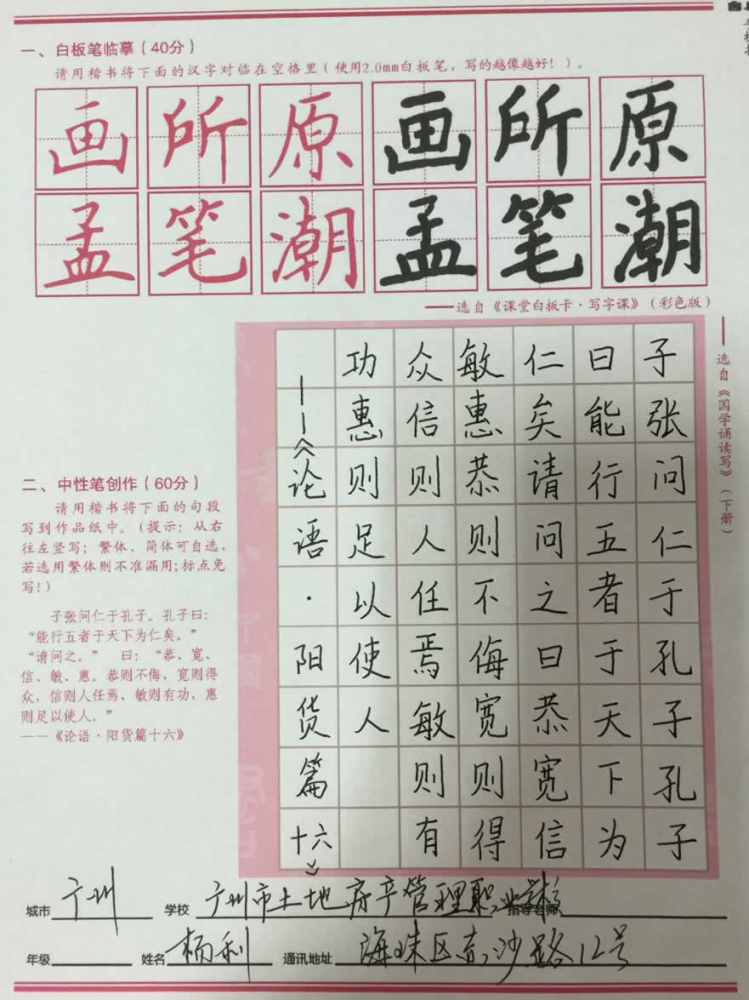 一、白板笔临摹（40分）
请用楷书将下面的汉字对临在空格里（使用2.0mm白板笔，写的越像越好！）。
画所原画所原
孟笔潮孟笔潮
——选自《课堂白板卡·写字课》（彩色版）
——选自《国学诵读写》（下册）
二、中性笔创作（60分）
请用楷书将下面的句段
写到作品纸中。（提示：从右
往左竖写；繁体、简体可自选，
若选用繁体则不准漏用；标点免
写！）
子张问仁于孔子。孔子曰：
“能行五者于天下为仁矣。”
“请问之。” 曰：“恭、宽、
信、敏、惠。恭则不侮，宽则得
众，信则人任焉，敏则有功，惠
则足以使人。”
——《论语·阳货篇十六》
子张问仁于孔子孔子
曰能行五者于天下为
仁矣请问之曰恭宽信
敏惠恭则不侮宽则得
众信则人任焉敏则有
功惠则足以使人
——《论语·阳货篇十六》
城市 广州 学校 广州市土地房产管理职业学校 指导老师
年级 姓名 杨利 通讯地址 海珠区 沙路12号